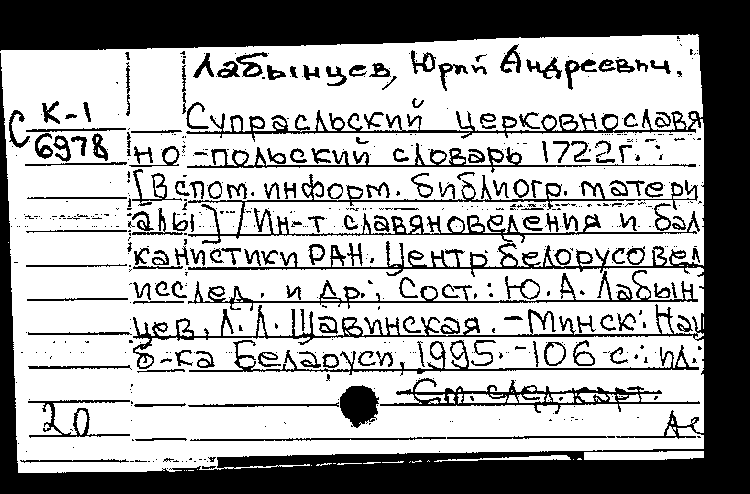 Лабынцев, Юрий Андреевич.
С К-1
6978
Супрасльский церковнославя
но-польский словарь 1722г.:
[Вспом. информ. библиогр. матери
алы] / Ин-т славяноведения и бал
канистики РАН. Центр белорусовед
исслед. и др.; Сост.: Ю. А. Лабын-
цев, Л. Л. Щавинская. - Минск: Нац
б-ка Беларуси, 1995. - 106 с.: ил.;
См. след. карт.
20